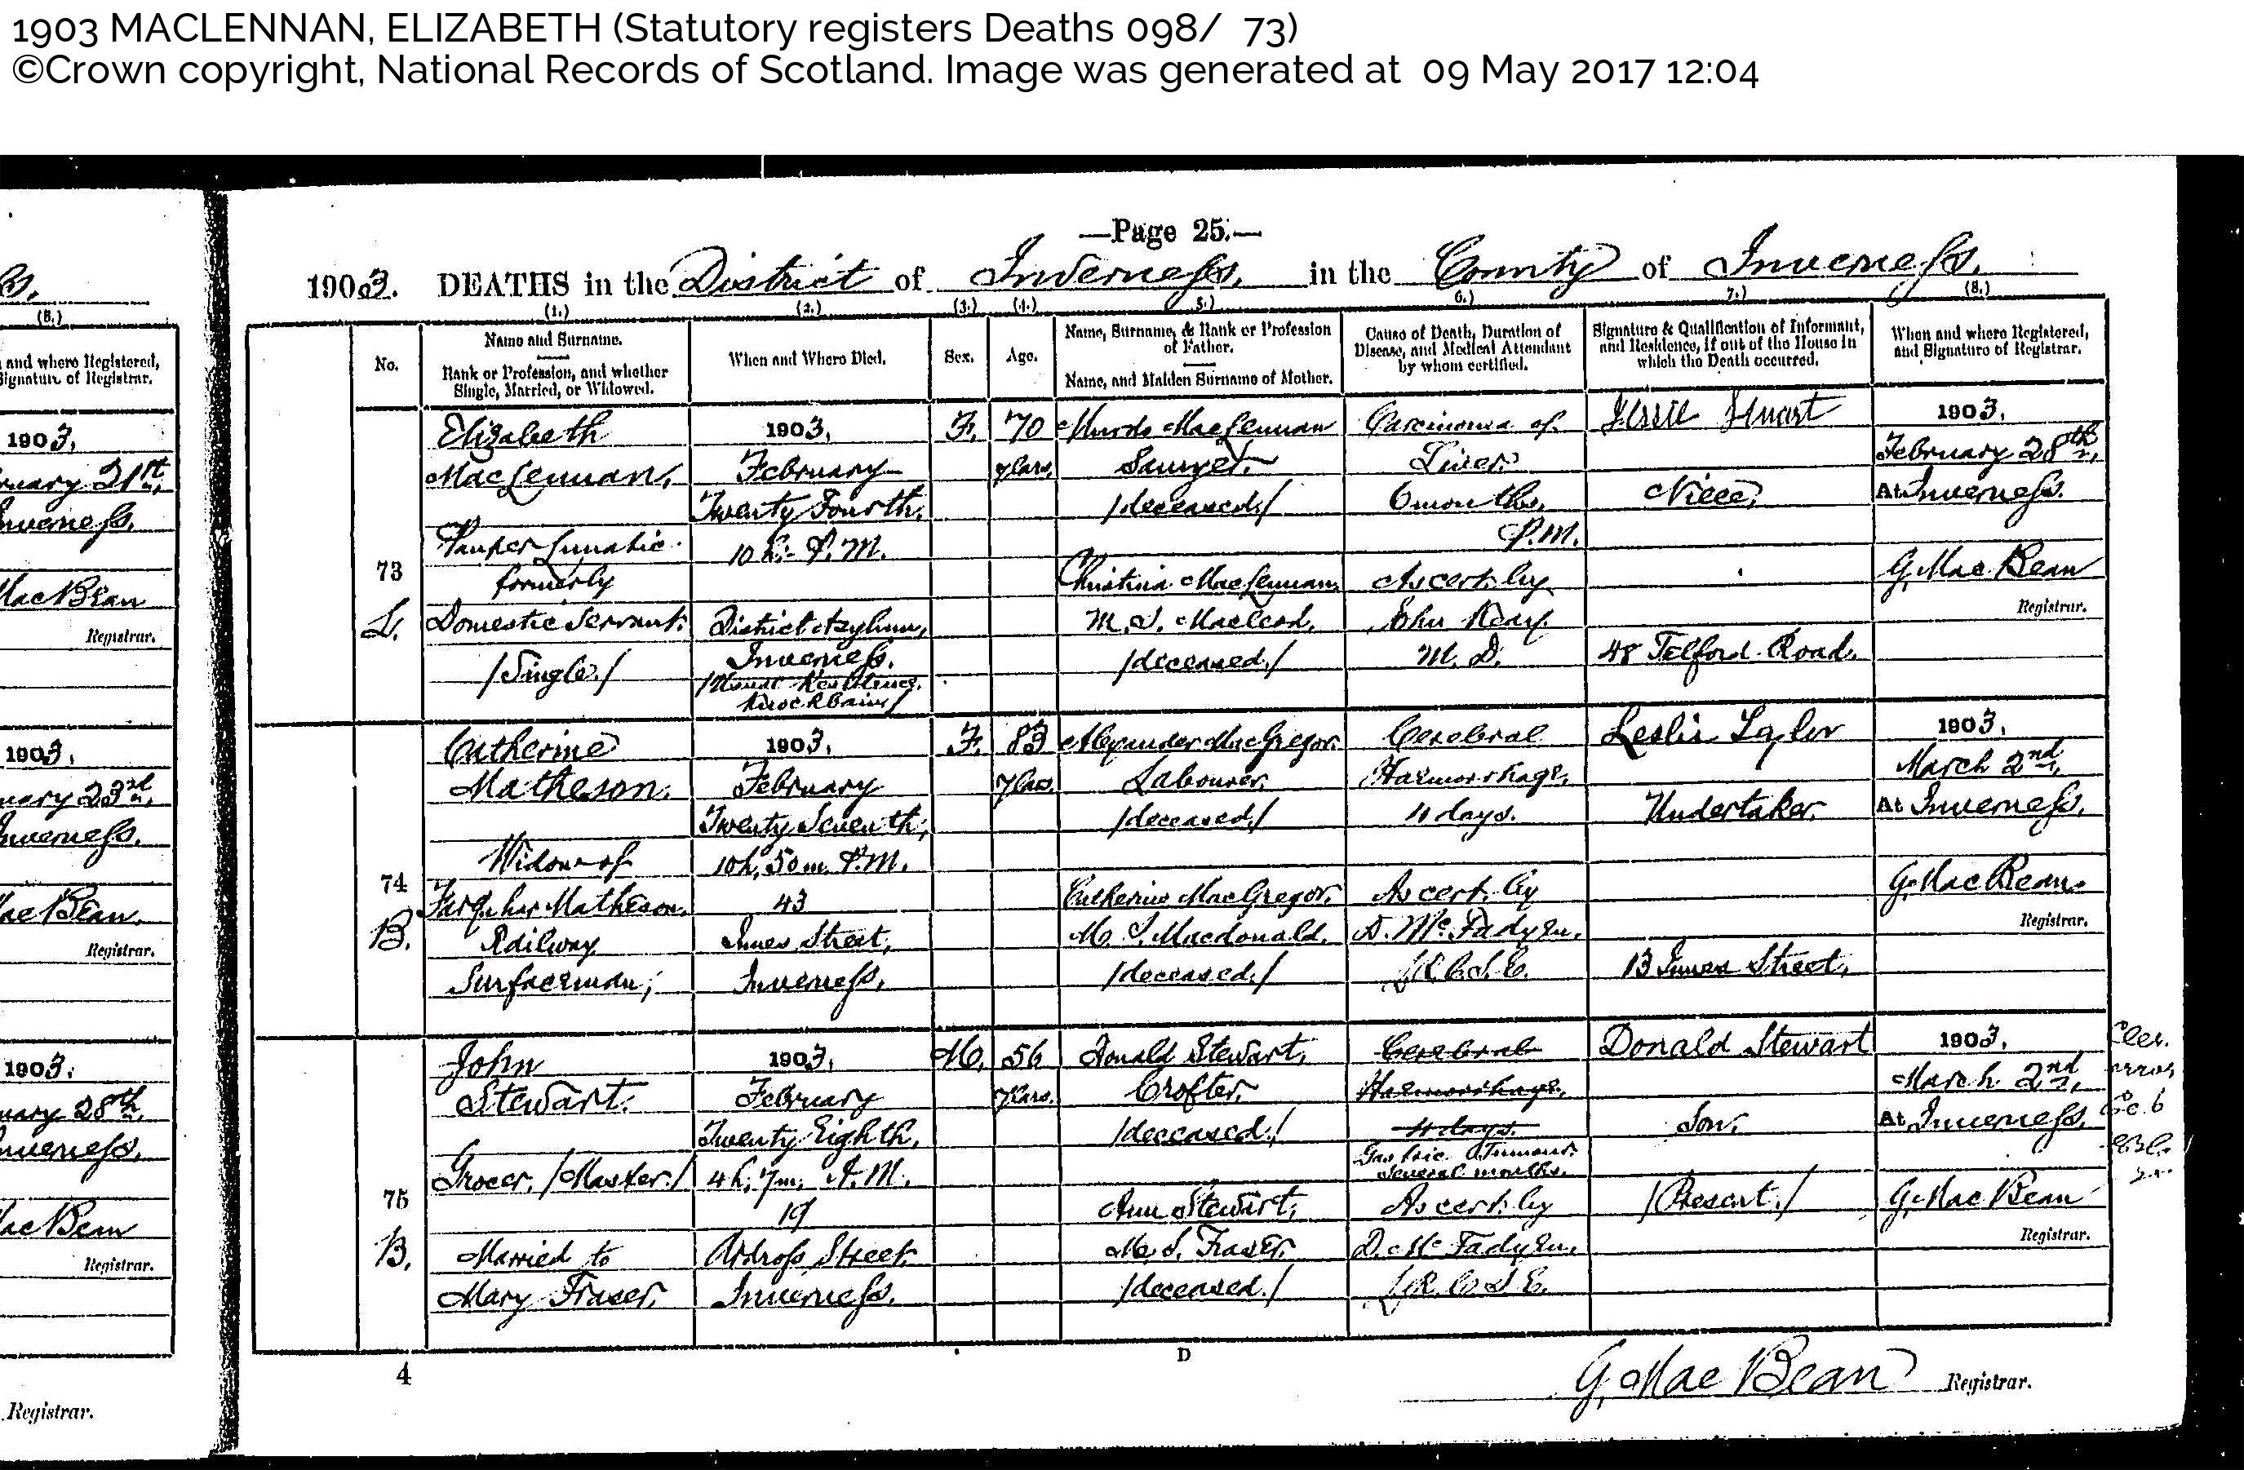 1903 MACLENNAN, ELIZABETH (Statutory registers Deaths 098/ 73)
©Crown copyright, National Records of Scotland. Image was generated at 09 May 2017 12:04
—Page 25.—
1903. DEATHS in the District of Inverness, in the County of Inverness.
(1.) (2.) (3.) (4.) 5.) 6.) 7.) (8.)
No.
Name and Surname.
Rank or Profession, and whether
Single, Married, or Widowed.
When and Where Died.
Sex.
Age.
Name, Surname, & Rank or Profession
of Father.
Name, and Maiden Surname of Mother.
Cause of Death, Duration of
Disease, and Medical Attendant
by whom certified.
Signature & Qualification of Informant,
and Residence, if out of the House in
which the Death occurred.
When and where Registered,
and Signature of Registrar.
73
L.
Elizabeth
MacLennan,
Pauper Lunatic
formerly
Domestic Servant.
/Single/
1903,
February
Twenty Fourth,
10 h. P.M.
District Asylum,
Inverness.
/Usual Residence,
Knockbain/
F.
70
years
Murdo MacLennan
Sawyer.
/deceased/
Christina MacLennan,
M.S. Macleod.
/deceased./
Carcinoma of
Liver
6 months,
P.M.
As cert. by
John Keay
M.D.
Jessie Stuart
Niece,
48 Telford Road.
1903,
February 28th,
At Inverness.
G. MacBean
Registrar.
74
B.
Catherine
Matheson.
Widow of
Farquhar Matheson,
Railway
Surfaceman;
1903,
February
Twenty Seventh,
10h. 50m. P.M.
43
Innes Street,
Inverness,
F.
83
years
Alexander MacGregor.
Labourer,
/deceased/
Catherine MacGregor,
M.S. Macdonald.
/deceased./
Cerebral
Haemorrhage,
4 days.
As cert. by
D. McFadyen,
L.R.C.S.E.
Leslie Taylor
Undertaker.
13 Innes Street,
1903,
March 2nd,
At Inverness,
G. MacBean.
Registrar.
75
B.
John
Stewart.
Grocer, /Master/
Married to
Mary Fraser.
1903,
February
Twenty Eighth,
4h. 7m. A.M.
19
Ardross Street
Inverness.
M.
56
Years.
Donald Stewart,
Crofter
/deceased./
Ann Stewart,
M.S. Fraser.
/deceased./
Cerebral
Haemorrhage.
4 days.
Gastric Tumour
several months.
As cert. by
D. McFadyen,
L.R.C.S.E.
Donald Stewart
Son,
/Present./
1903,
March 2nd,
At Inverness,
G. MacBean
Registrar.
4
D
G. MacBean Registrar.